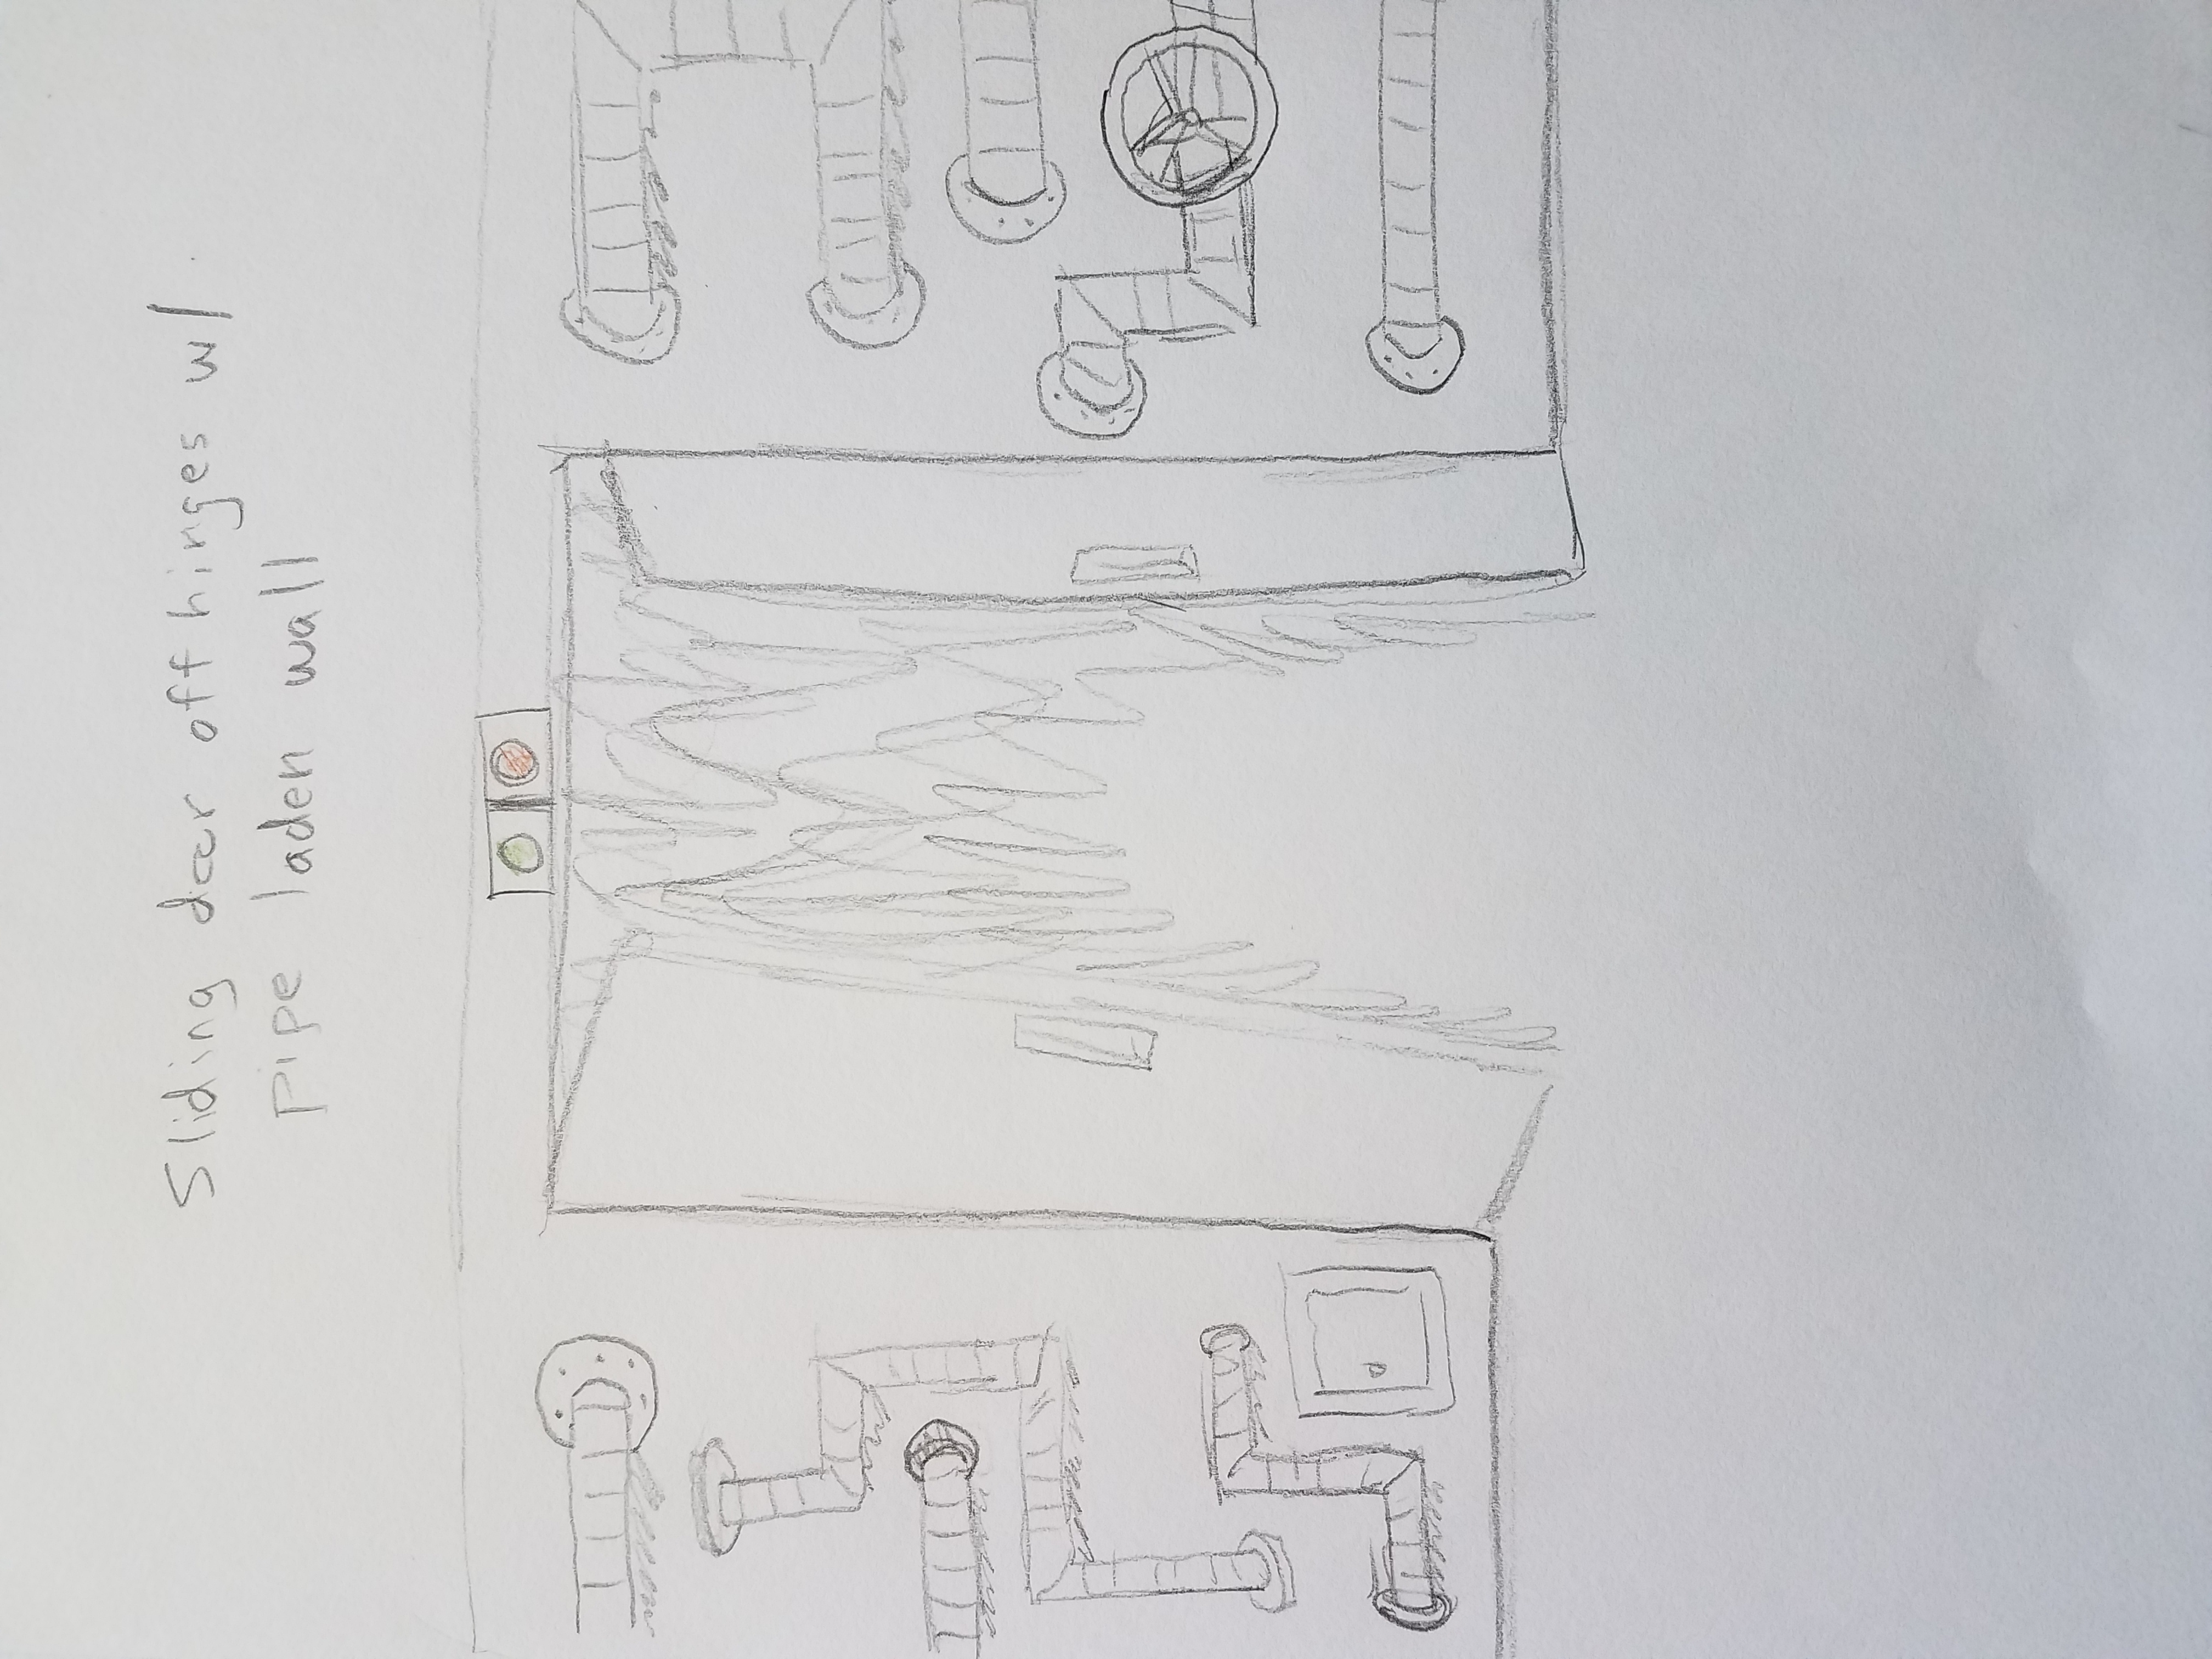 Sliding door off hinges w/
pipe laden wall